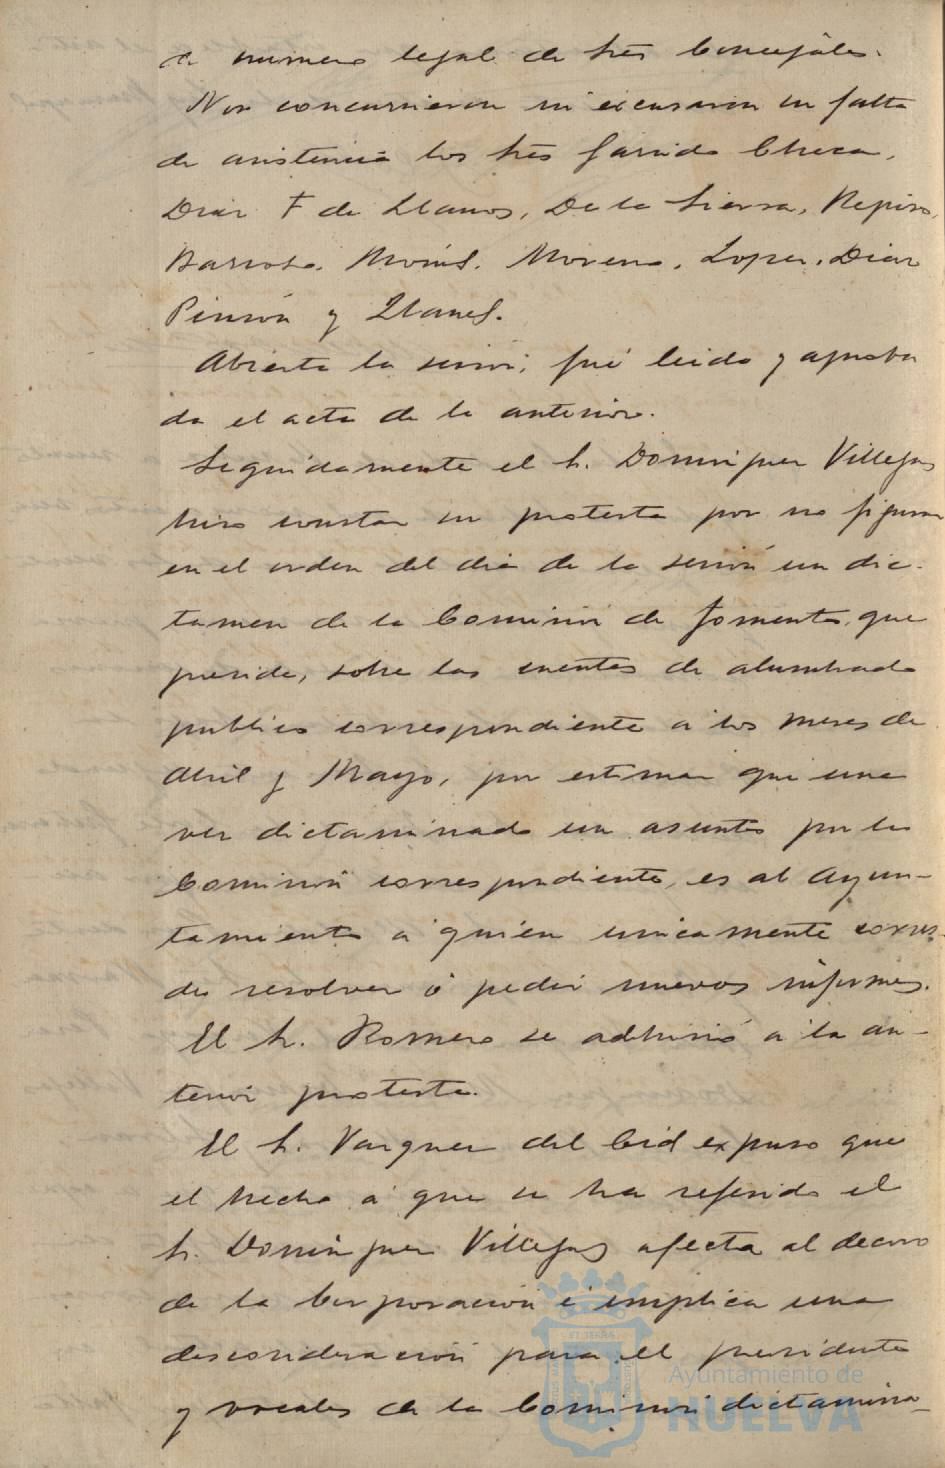 de numero legal de Sres Concejales.
Nos concurrieron ni escusaron su falta
de asistencia los Sres Garrido Checa,
Diaz F de Llanos, De la Sierra, Repiso,
Barroso. Moreno, Lopez, Diaz
Pinzón y Llanes.
Abierta la sesión, fué leida y aproba
da el acta de la anterior.
Seguidamente el S. Dominguez Villegas
hizo constar su protesta por no figurar
en el orden del dia de la sesión un dic-
tamen de la Comisión de fomento, que
preside, sobre las cuentas de alumbrado
publico correspondiente a los meses de
Abril y Mayo, por estimar que una
vez dictaminado un asunto por la
Comisión correspondiente, es al Ayun-
tamiento a quién unicamente corres-
de resolver ó pedir nuevos informes.
El S. Romero se adhirió a la an-
terior protesta.
El S. Vazquez del Cid expuso que
el hecho a que se ha referido el
S. Dominguez Villegas afecta al decoro
de la Corporación é implica una
desconsideración para el presidente
y vocales de la Comisión dictamina-
Ayuntamiento de
HUELVA